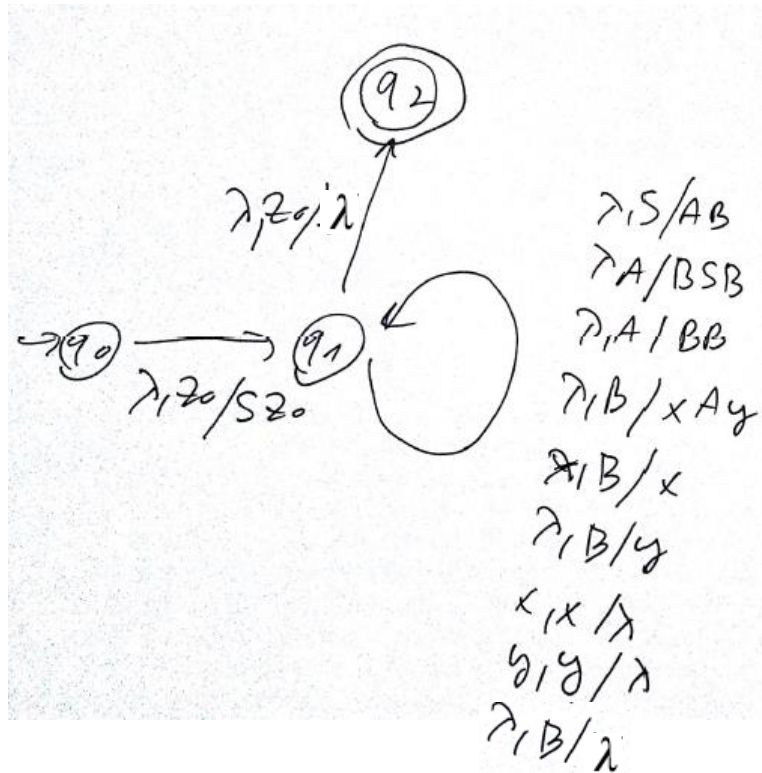 q2
λ,Z0/λ
q0
λ,Z0/SZ0
q1
λ,S/AB
λA/BSB
λ,A/BB
λ,B/xAy
λ,B/x
λ,B/y
x,x/λ
y,y/λ
λ,B/λ